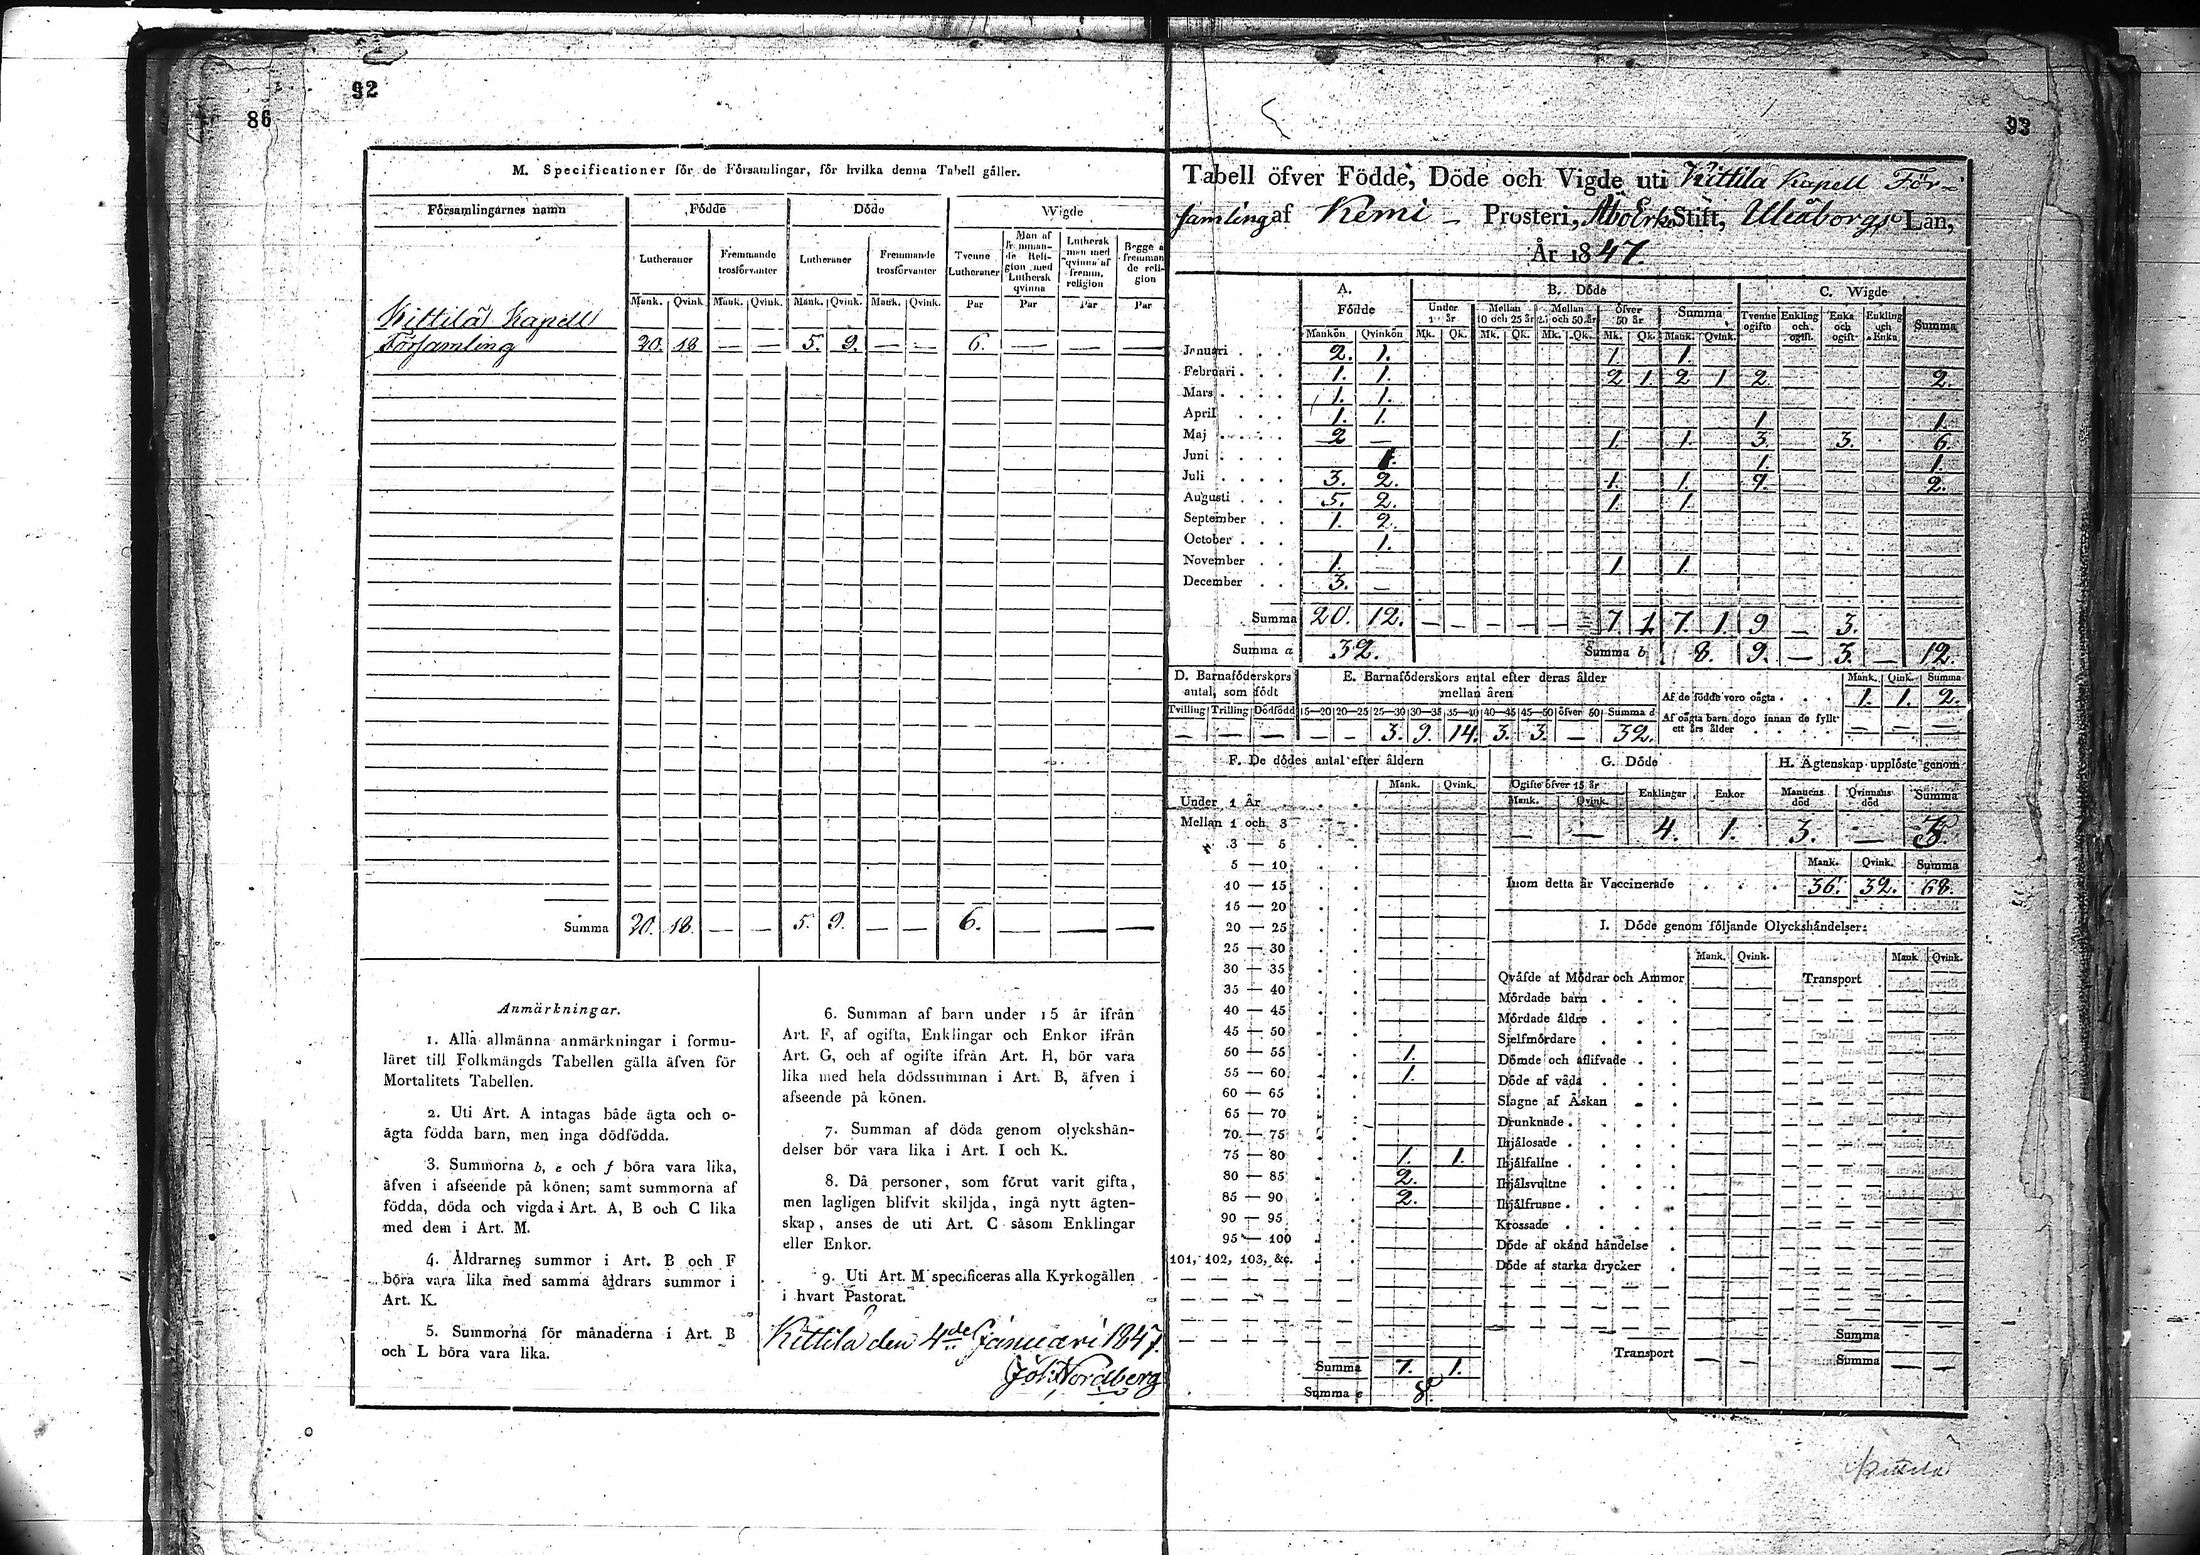 92
86
M. Specificationer för de Församlingar, för hvilka denna Tabell gäller.
Församlingarnes namn
Födde
Döde
Wigde
Lutheraner
Fremmande trosförvanter
Lutheraner
Fremmande trosförvanter
Tvenne Lutheraner
Man af fremmande Religion med Luthersk qvinna
Luthersk man med qvinna af fremm. religion
Begge a fremmande religion
Mank. Qvink. Mank. Qvink. Mank. Qvink. Mank. Qvink. Par Par Par Par
Kittilä Kapell
Församling 20. 18 — — 5. 9. — — 6. — — —
Summa 20. 18. — — 5. 9. — — 6. — — —
Anmärkningar.
1. Alla allmänna anmärkningar i formu-
läret till Folkmängds Tabellen gälla äfven för
Mortalitets Tabellen.
2. Uti Art. A intagas både ägta och o-
ägta födda barn, men inga dödfödda.
3. Summorna b, e och f böra vara lika,
äfven i afseende på könen; samt summorna af
födda, döda och vigda i Art. A, B och C lika
med dem i Art. M.
4. Åldrarnes summor i Art. B och F
böra vara lika med samma åldrars summor i
Art. K.
5. Summorna för månaderna i Art. B
och L böra vara lika.
6. Summan af barn under 15 år ifrån
Art. F, af ogifta, Enklingar och Enkor ifrån
Art. G, och af ogifte ifrån Art. H, bör vara
lika med hela dödssumman i Art. B, äfven i
afseende på könen.
7. Summan af döda genom olyckshän-
delser bör vara lika i Art. I och K.
8. Då personer, som förut varit gifta,
men lagligen blifvit skiljda, ingå nytt ägten-
skap, anses de uti Art. C såsom Enklingar
eller Enkor.
9. Uti Art. M specificeras alla Kyrkogällen
i hvart Pastorat.
Kittilä den 4de Januari 1847.
Nordberg
93
Tabell öfver Födde, Döde och Vigde uti Kittilä Kapell För-
samling af Kemi — Prosteri, Åbo Erke Stift, Uleåborgs Län,
År 1847.
A. Födde
B. Döde
C. Wigde
Under 1 år
Mellan 10 och 25 år
Mellan 25 och 50 år
öfver 50 år
Summa
Tvenne ogifte
Enkling och ogift
Enka och ogift
Enkling och Enka
Summa
Mankön Qvinkön Mk. Qk. Mk. Qk. Mk. Qk. Mk. Qk. Mank. Qvink.
Januari 2. 1. 1. 1.
Februari 1. 1. 2 1. 2 1 2 2.
Mars 1. 1.
April 1. 1. 1. 1.
Maj 2 — 1. 1. 3. 3. 6.
Juni 1. 1. 1.
Juli 3. 2. 1. 1. 2. 2.
Augusti 5. 2. 1. 1.
September 1. 2.
October 1.
November 1. 1 1.
December 3. —
Summa 20. 12. — — — — — — 7. 1. 7. 1. 9 — 3.
Summa a 32. Summa b 8. 9. — 3. — 12.
D. Barnaföderskors antal, som födt
Tvilling Trilling Dödfödd
— — —
E. Barnaföderskors antal efter deras ålder mellan åren
15—20 20—25 25—30 30—35 35—40 40—45 45—50 öfver 50 Summa d
— — 3. 9. 14. 3. 3. — 32.
Mank. Qink. Summa
Af de födde voro oägta 1. 1. 2.
Af oägta barn dogo innan de fyllt
ett års ålder — — —
F. De dödes antal efter åldern
Mank. Qvink.
Under 1 År
Mellan 1 och 3
3 — 5
5 — 10
10 — 15
15 — 20
20 — 25
25 — 30
30 — 35
35 — 40
40 — 45
45 — 50
50 — 55 1.
55 — 60 1.
60 — 65
65 — 70
70 — 75
75 — 80 1. 1.
80 — 85 2.
85 — 90 2.
90 — 95
95 — 100
101, 102, 103, &c.
Summa 7. 1.
Summa e 8.
G. Döde
Ogifte öfver 15 år
Mank. Qvink. Enklingar Enkor
— — 4. 1.
H. Ägtenskap upplöste genom
Mannens död Qvinnans död Summa
3. — 3.
Mank. Qvink. Summa
Inom detta år Vaccinerade 36. 32. 68.
I. Döde genom följande Olyckshändelser:
Mank. Qvink. Mank. Qvink.
Qväfde af Mödrar och Ammor
Mördade barn
Mördade äldre
Sjelfmördare
Dömde och aflifvade
Döde af våda
Slagne af Åskan
Drunknade
Ihjälosade
Ihjälfallne
Ihjälsvultne
Ihjälfrusne
Krossade
Döde af okänd händelse
Döde af starka drycker
Transport — —
Transport
Summa
Summa — —
Kittilä